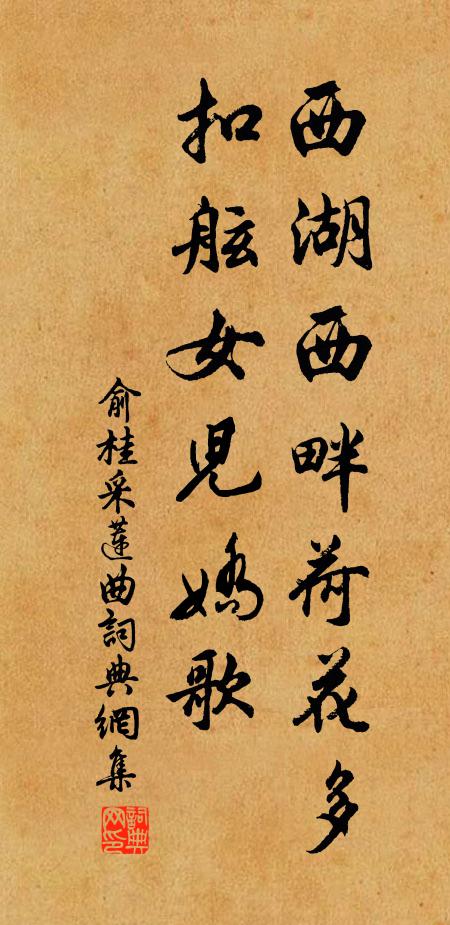 西湖西畔荷花多
扣舷女兒嬌歌
俞桂采蓮曲詞典網集
詞典网印